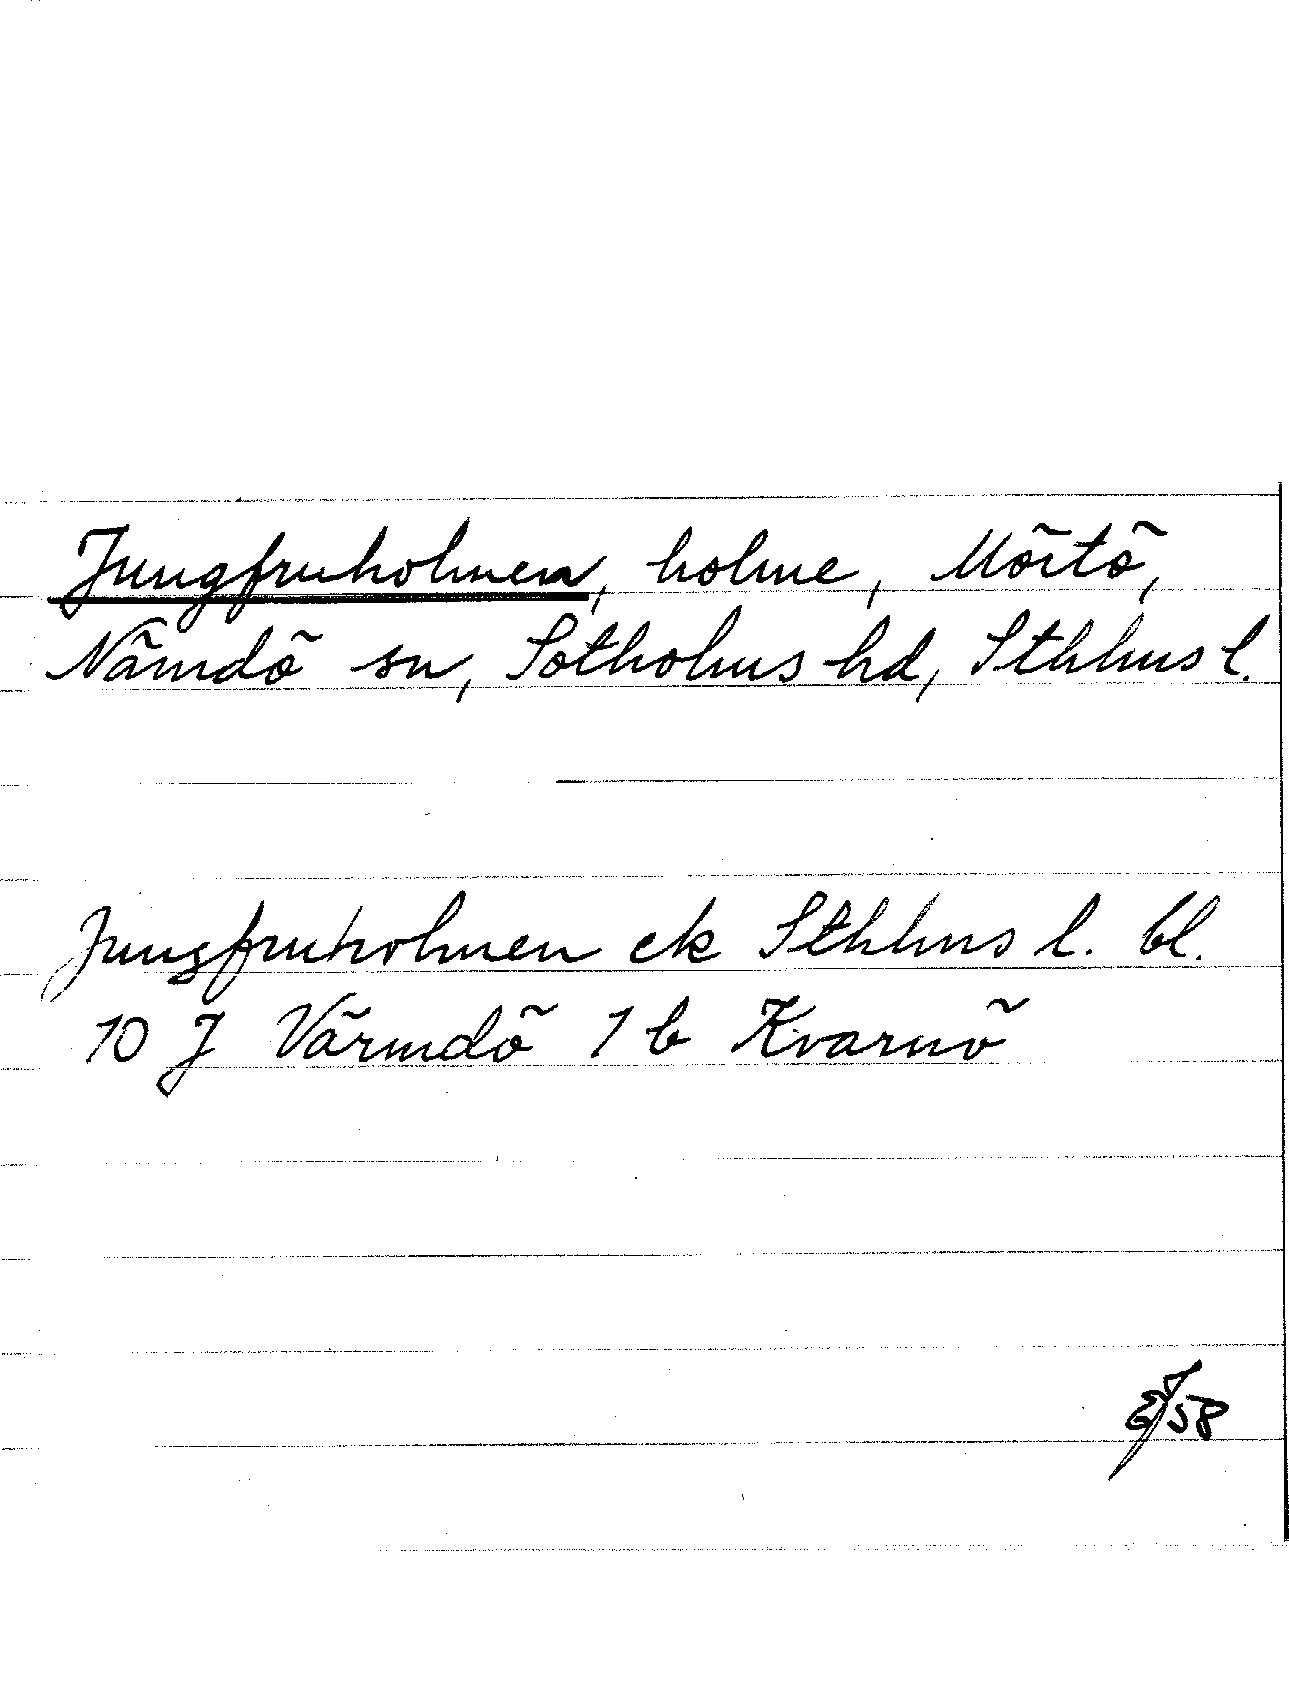 Jungfruholmen, holme, Mörtö,
Nämdö sn, Sotholms hd, Sthlms l.
Jungfruholmen ek Sthlms l. bl.
10 J Värmdö 1 b Kvarnö
EJ/58